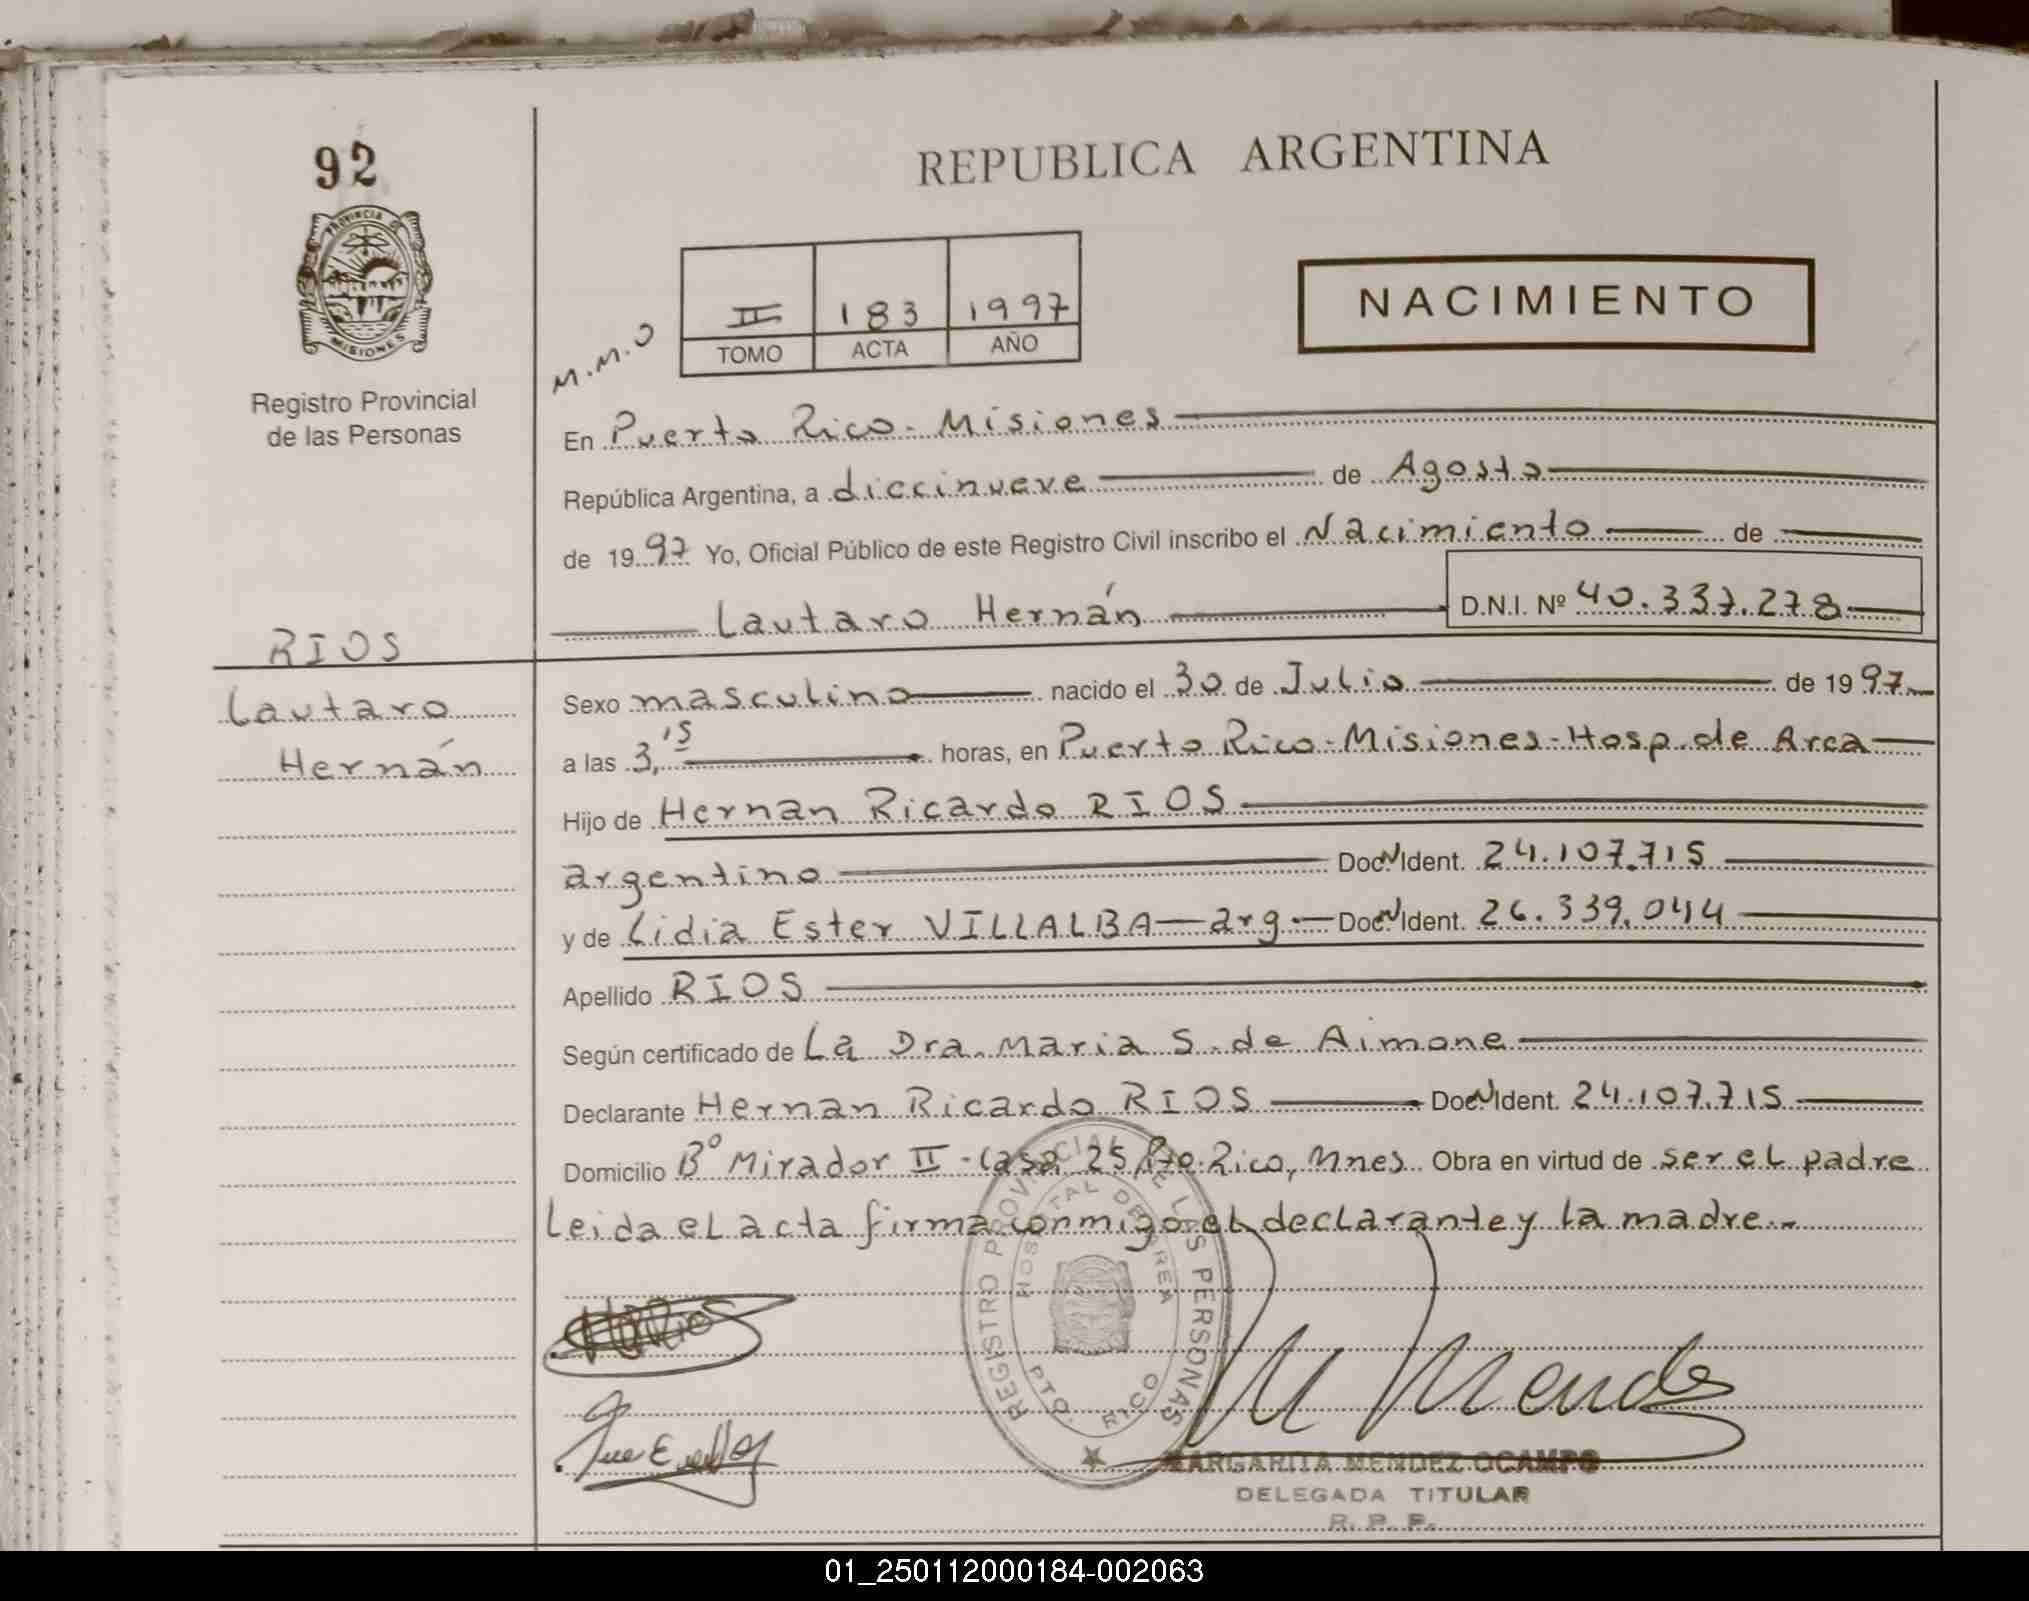 92
PROVINCIA DE
MISIONES
Registro Provincial
de las Personas
REPUBLICA ARGENTINA
NACIMIENTO
M.M.O
II 183 1997
TOMO ACTA AÑO
En Puerto Rico - Misiones
República Argentina, a diecinueve de Agosto
de 1997 Yo, Oficial Público de este Registro Civil inscribo el Nacimiento de
Lautaro Hernán D.N.I. Nº 40.337.278
RIOS
Lautaro
Hernán
Sexo masculino nacido el 30 de Julio de 1997
a las 3,15 horas, en Puerto Rico - Misiones - Hosp. de Area
Hijo de Hernan Ricardo RIOS
argentino Doc.N.Ident. 24.107.715
y de Lidia Ester VILLALBA - arg. Doc.N.Ident. 26.339.044
Apellido RIOS
Según certificado de La Dra. Maria S. de Aimone
Declarante Hernan Ricardo RIOS Doc.N.Ident. 24.107.715
Domicilio Bº Mirador II - Casa 25 Pto. Rico, Mnes. Obra en virtud de ser el padre
Leida el acta firma conmigo el declarante y la madre.-
REGISTRO PROVINCIAL DE LAS PERSONAS
HOSPITAL DE AREA
PTO. RICO
H R Rios
M Mendez
MARGARITA MENDEZ OCAMPO
DELEGADA TITULAR
R. P. P.
01_250112000184-002063